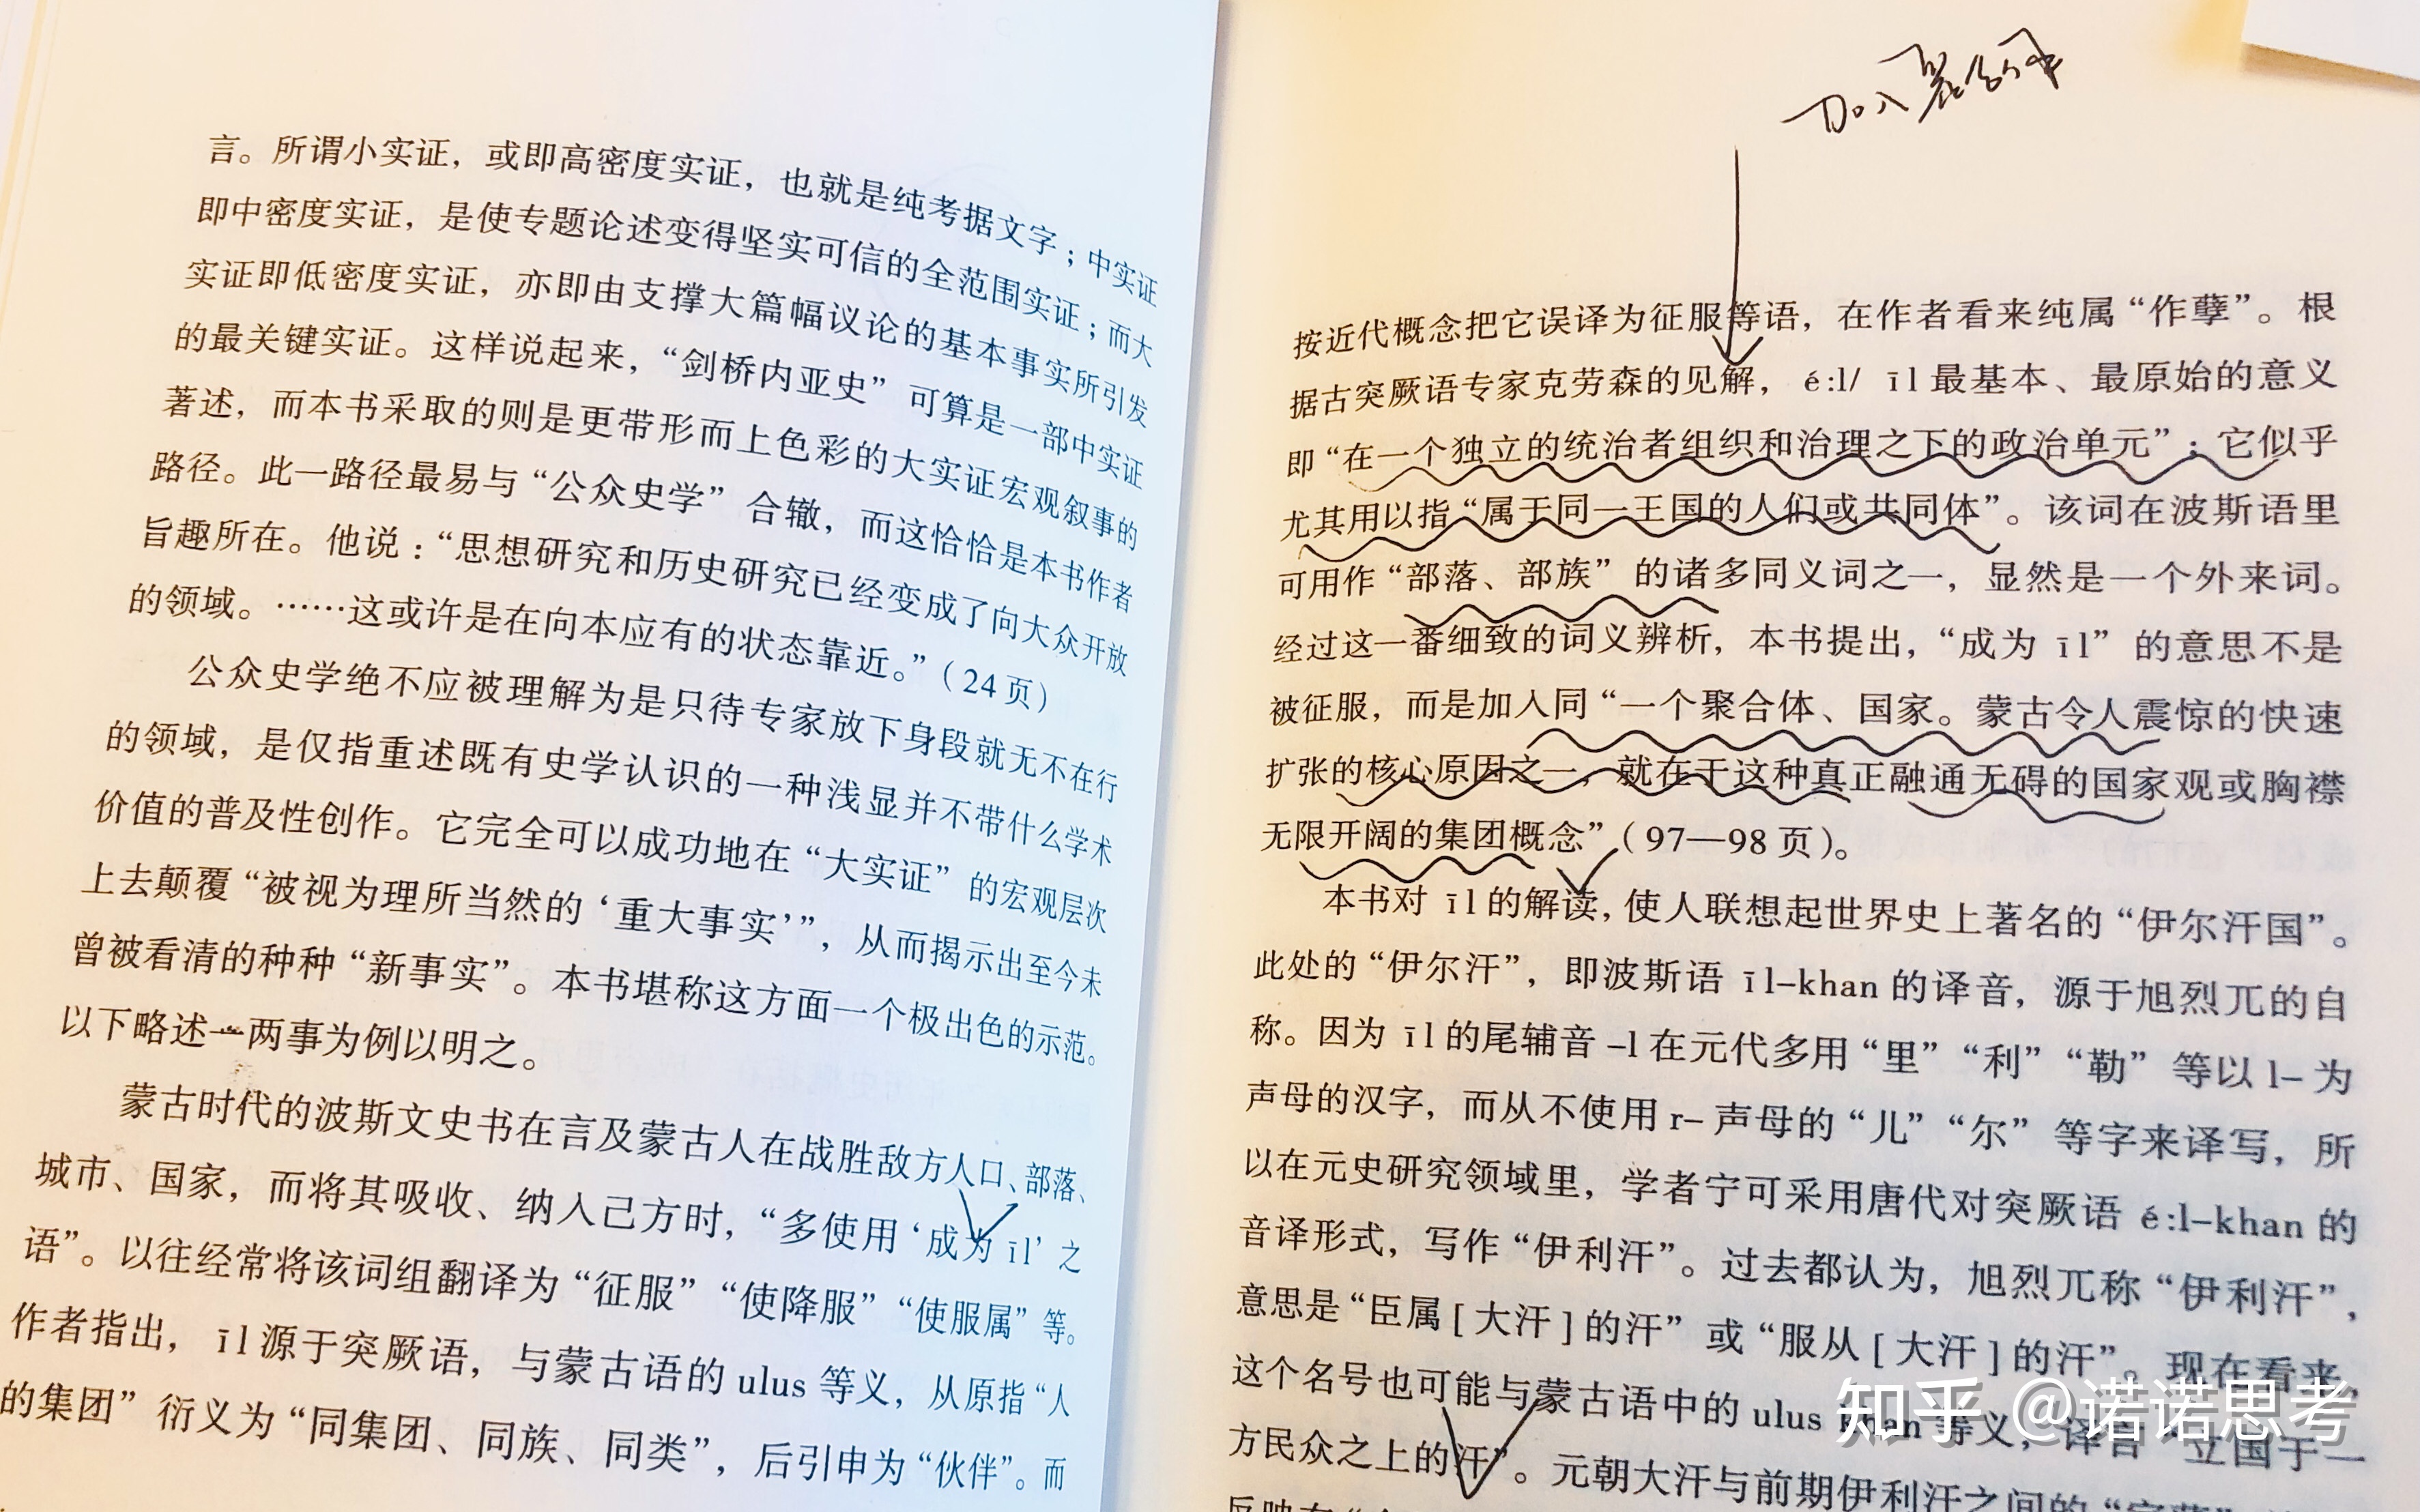 言。所谓小实证，或即高密度实证，也就是纯考据文字；中实证
即中密度实证，是使专题论述变得坚实可信的全范围实证；而大
实证即低密度实证，亦即由支撑大篇幅议论的基本事实所引发
的最关键实证。这样说起来，“剑桥内亚史”可算是一部中实证
著述，而本书采取的则是更带形而上色彩的大实证宏观叙事的
路径。此一路径最易与“公众史学”合辙，而这恰恰是本书作者
旨趣所在。他说：“思想研究和历史研究已经变成了向大众开放
的领域。……这或许是在向本应有的状态靠近。”（24页）
公众史学绝不应被理解为是只待专家放下身段就无不在行
的领域，是仅指重述既有史学认识的一种浅显并不带什么学术
价值的普及性创作。它完全可以成功地在“大实证”的宏观层次
上去颠覆“被视为理所当然的‘重大事实’”，从而揭示出至今未
曾被看清的种种“新事实”。本书堪称这方面一个极出色的示范。
以下略述一两事为例以明之。
蒙古时代的波斯文史书在言及蒙古人在战胜敌方人口、部落、
城市、国家，而将其吸收、纳入己方时，“多使用‘成为īl’之
语”。以往经常将该词组翻译为“征服”“使降服”“使服属”等。
作者指出，īl源于突厥语，与蒙古语的ulus等义，从原指“人
的集团”衍义为“同集团、同族、同类”，后引申为“伙伴”。而
加入
按近代概念把它误译为征服等语，在作者看来纯属“作孽”。根
据古突厥语专家克劳森的见解，é:l/ īl最基本、最原始的意义
即“在一个独立的统治者组织和治理之下的政治单元”；它似乎
尤其用以指“属于同一王国的人们或共同体”。该词在波斯语里
可用作“部落、部族”的诸多同义词之一，显然是一个外来词。
经过这一番细致的词义辨析，本书提出，“成为īl”的意思不是
被征服，而是加入同“一个聚合体、国家。蒙古令人震惊的快速
扩张的核心原因之一，就在于这种真正融通无碍的国家观或胸襟
无限开阔的集团概念”（97—98页）。
本书对īl的解读，使人联想起世界史上著名的“伊尔汗国”。
此处的“伊尔汗”，即波斯语īl-khan的译音，源于旭烈兀的自
称。因为īl的尾辅音-l在元代多用“里”“利”“勒”等以l-为
声母的汉字，而从不使用r-声母的“儿”“尔”等字来译写，所
以在元史研究领域里，学者宁可采用唐代对突厥语é:l-khan的
音译形式，写作“伊利汗”。过去都认为，旭烈兀称“伊利汗”，
意思是“臣属[大汗]的汗”或“服从[大汗]的汗”。现在看来，
这个名号也可能与蒙古语中的ulus khan等义，译言“立国于一
方民众之上的汗”。元朝大汗与前期伊利汗之间的“宗藩”
知乎 @诺诺思考